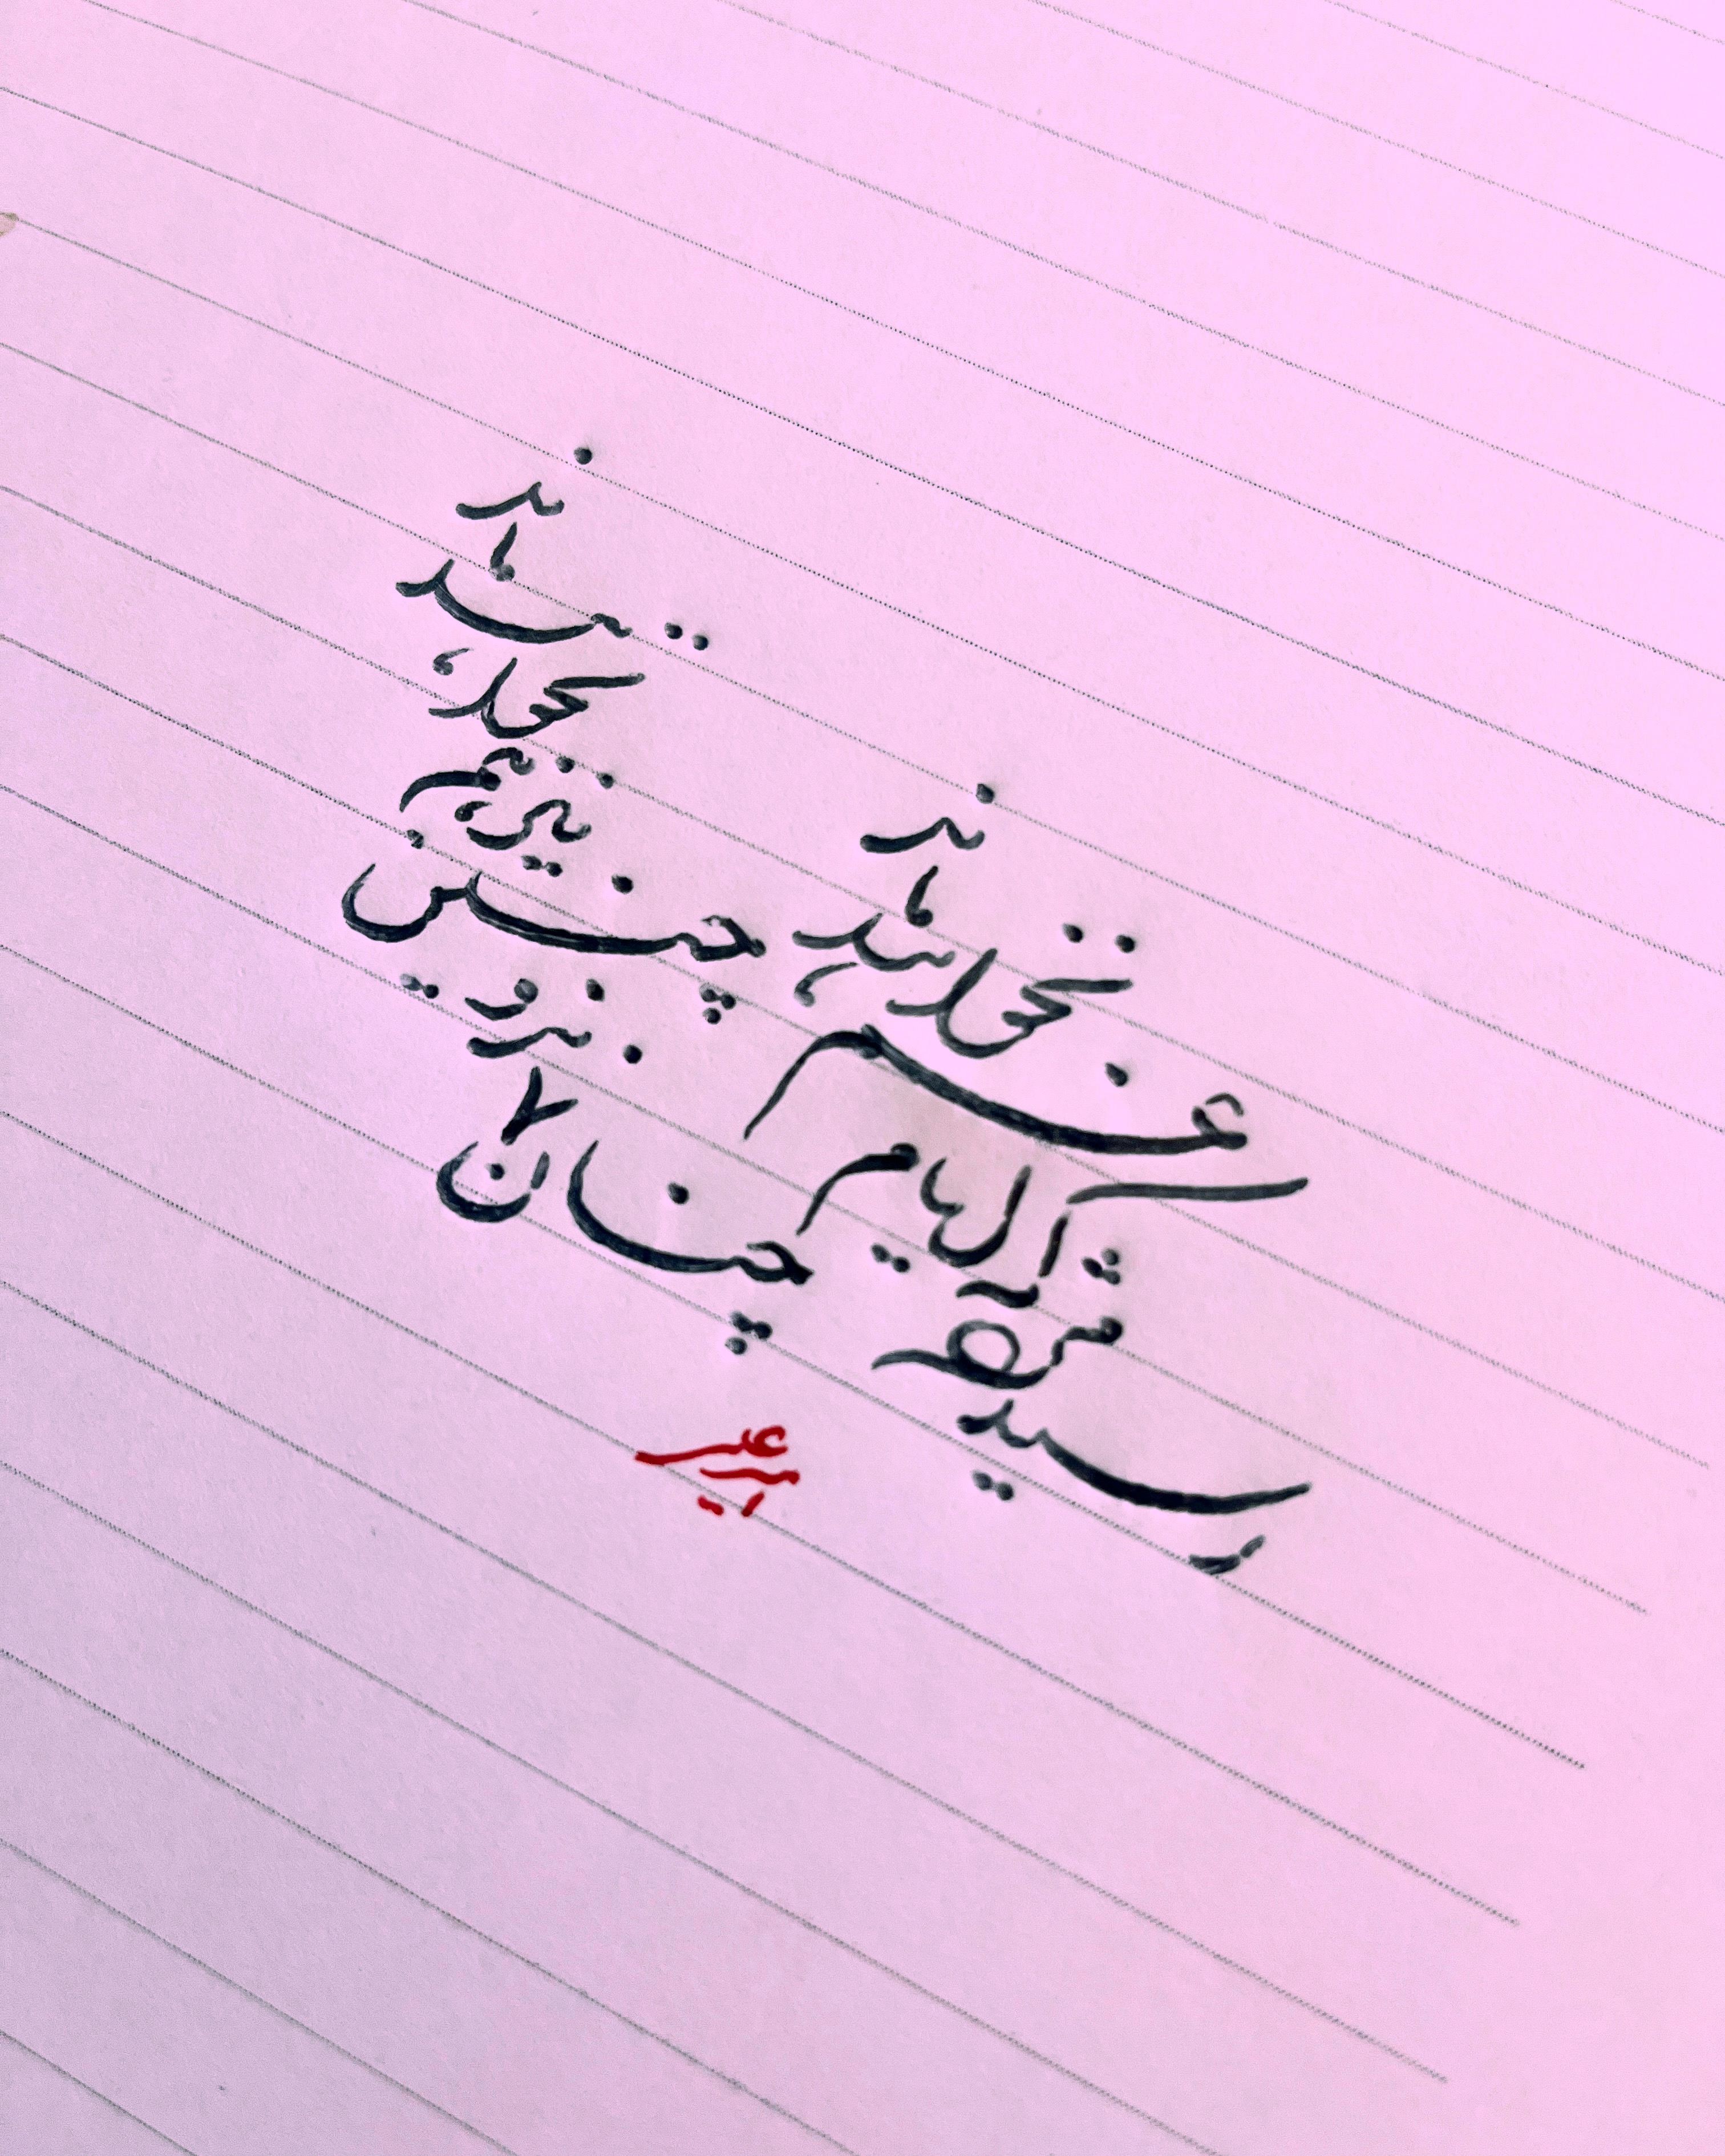 رسید مژده که ایام غم نخواهد ماند
چنان نماند و چنین نیز هم نخواهد ماند
امیر علی